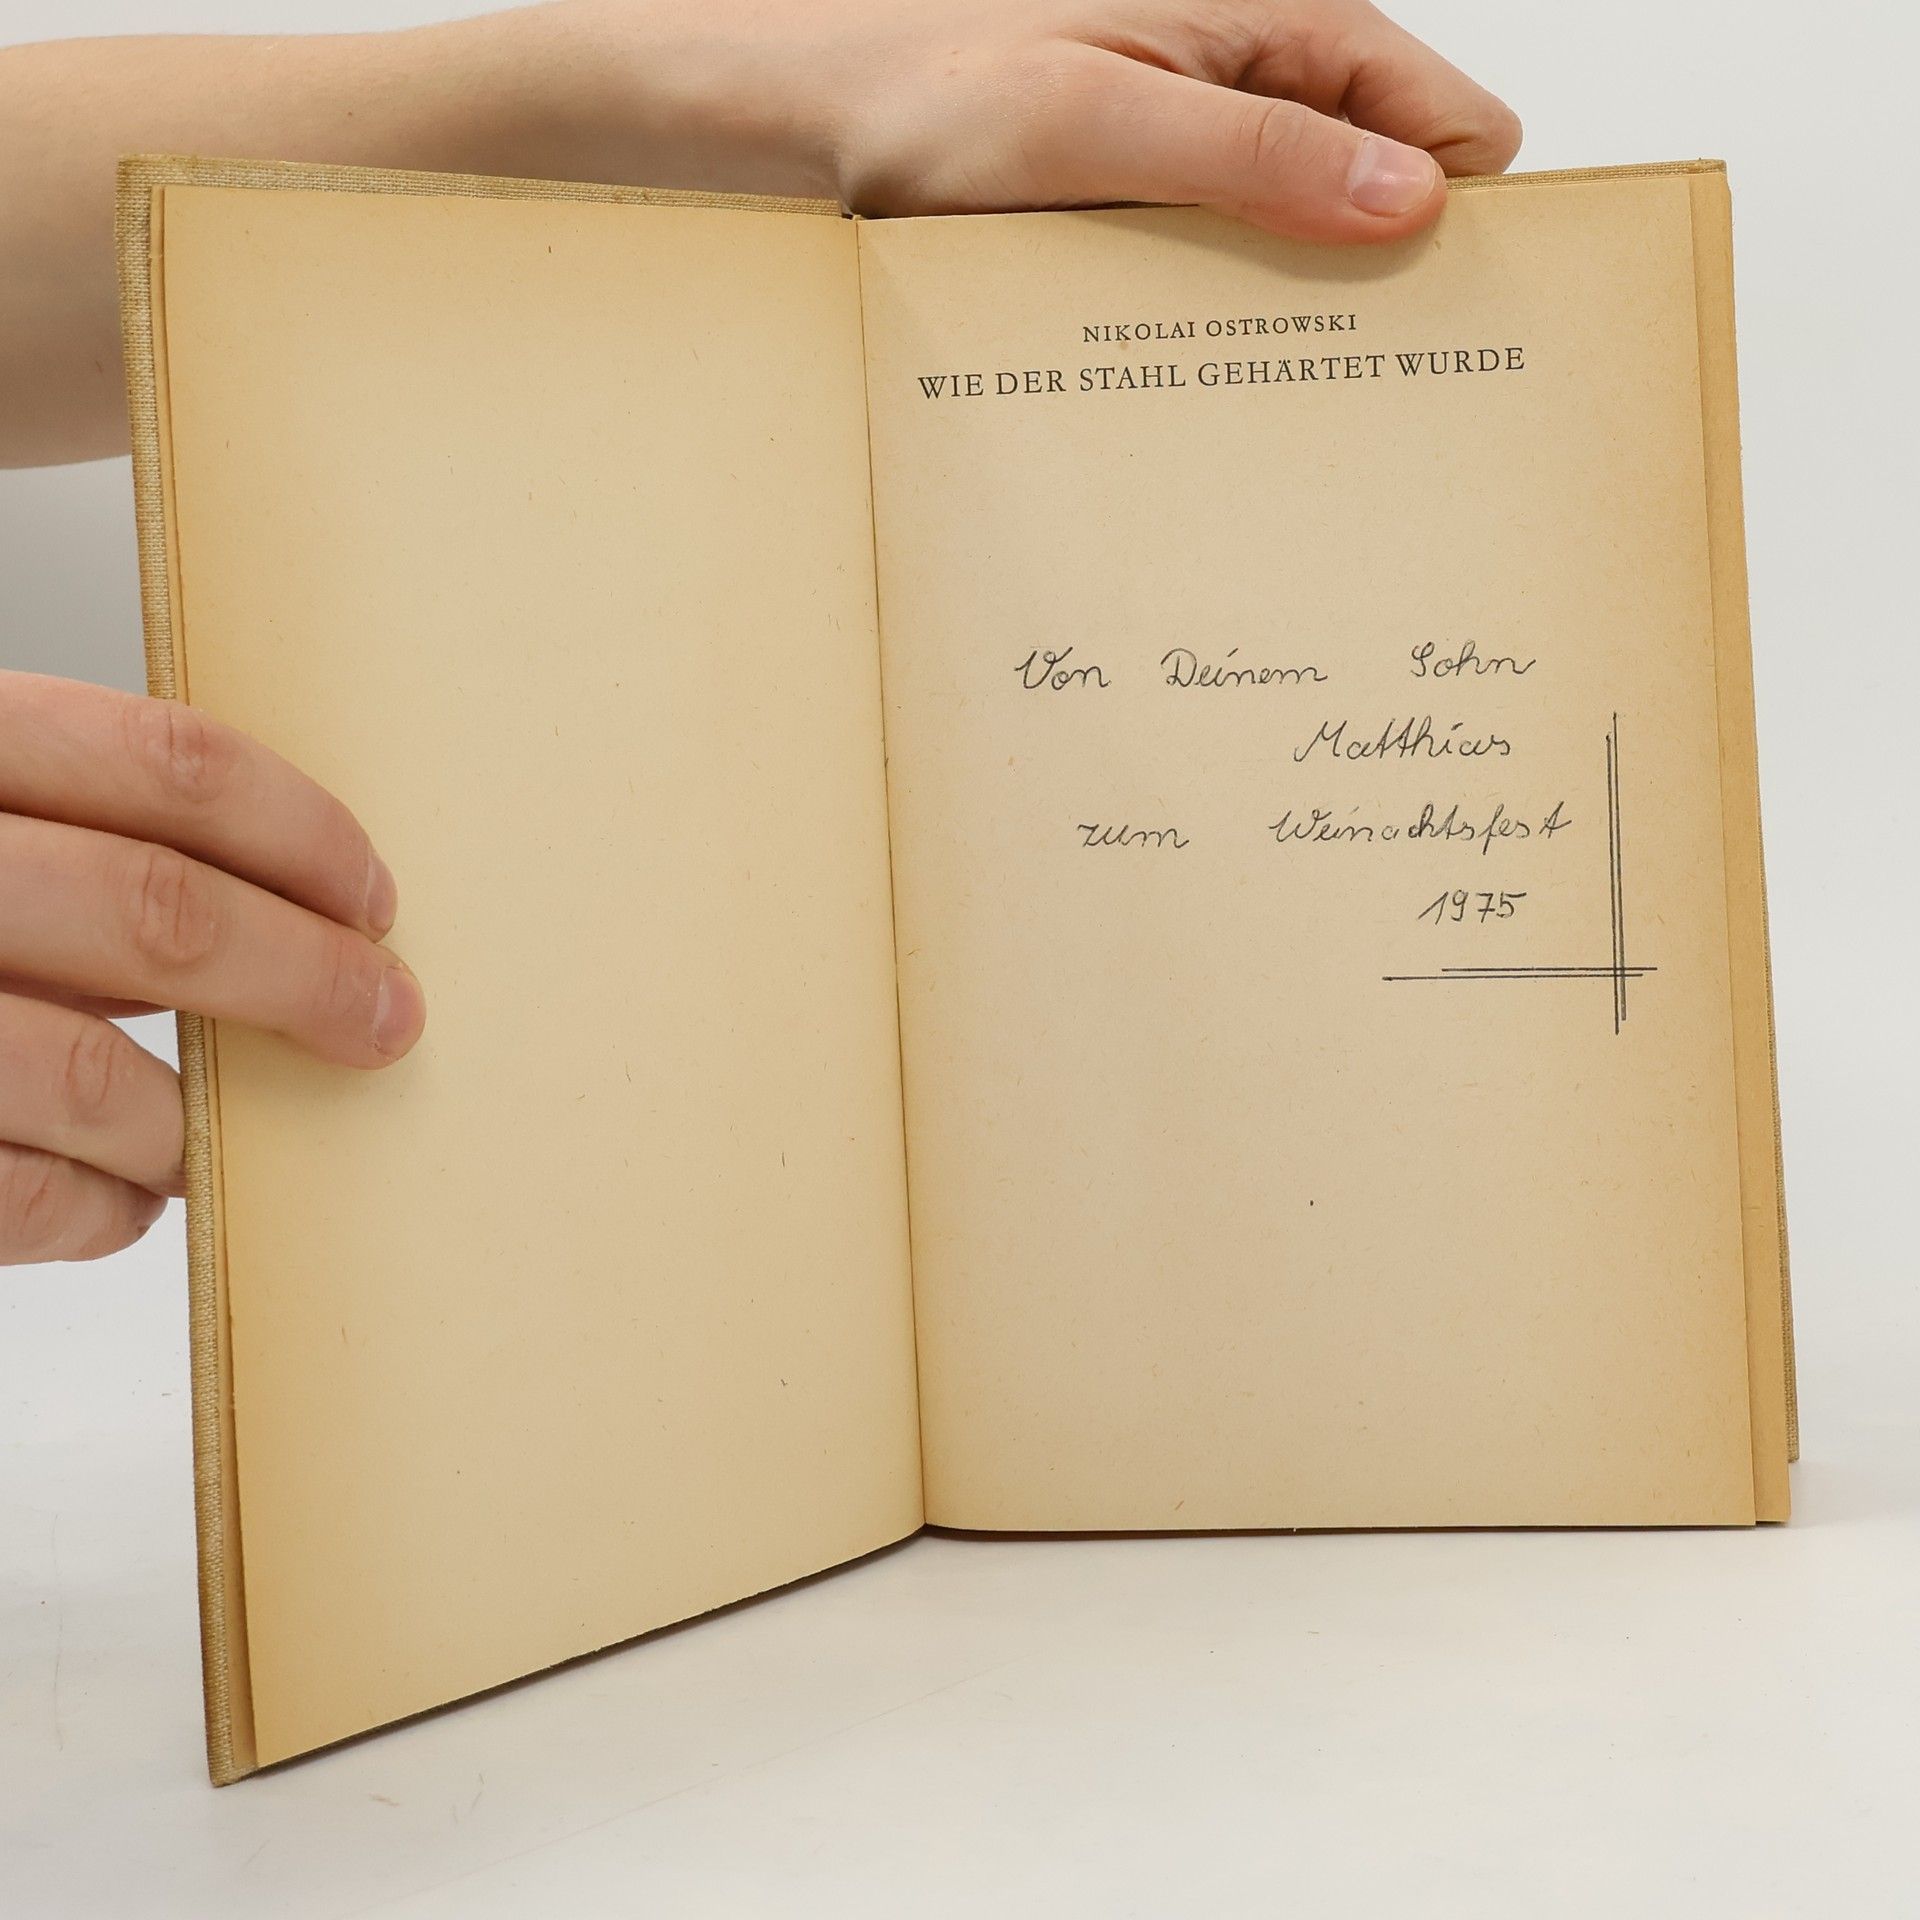 NIKOLAI OSTROWSKI
WIE DER STAHL GEHÄRTET WURDE
Von Deinem Sohn
Matthias
zum Weinachtsfest
1975